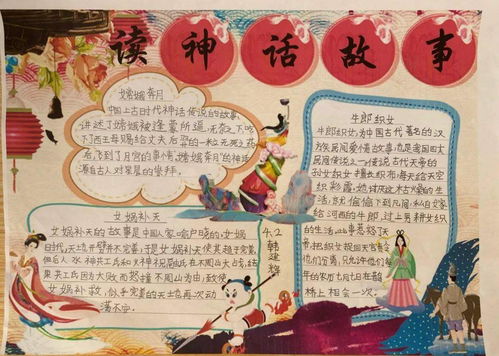 读神话故事
嫦娥奔月
中国上古时代神话传说的故事,
讲述了嫦娥被逢蒙所逼,无奈之下,吃
下了西王母赐给丈夫后羿的一粒不死之药
后,飞到了月宫的事情,"嫦娥奔月"的神话
源自古人对星辰的崇拜。
牛郎织女
牛郎织女,为中国古代著名的汉
族民间爱情故事,也是我国四大
民间传说之一,传说古代天帝的
孙女织女擅长织布,每天给天空
织彩霞,她讨厌这枯燥的生
活,就偷偷下到凡间,私自嫁
给河西的牛郎,过上男耕女织
的生活,此事惹怒了天
帝,把织女捉回天宫,责令
他们分离,只允许他们每
年的农历七月七日在鹊
桥上相会一次。
女娲补天
女娲补天的故事是中国人家喻户晓的,女娲
时代,天地开辟并不完善,于是女娲补天使其趋于完善,
但后人水神共工氏和火神祝融氏在不周山大战,结
果共工氏因为大败而怒撞不周山为由,致使
女娲补救,似乎完善的天地再次动
荡不安。
4.2
韩建